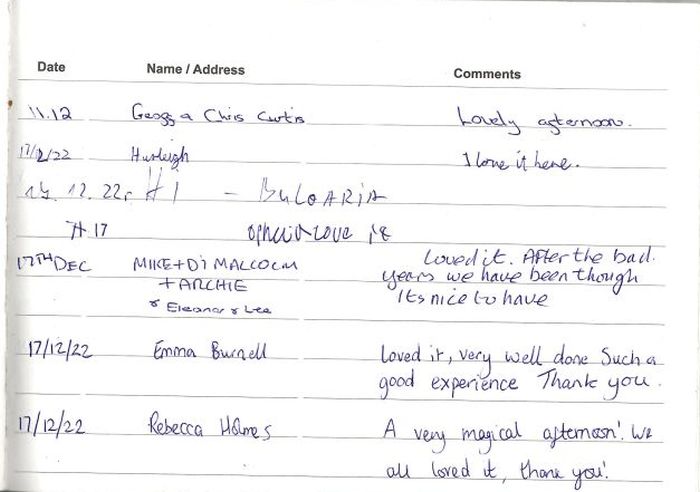 Date Name / Address Comments
11.12 Geoff & Chris Curtis Lovely afternoon.
17/12/22 Hurleigh I love it here.
12.22. HI - BULGARIA
17
17TH DEC MIKE + Di MALCOLM Loved it. After the bad
+ ARCHIE years we have been though
& Eleanor & Lee Its nice to have
17/12/22 Emma Burnell Loved it, very well done Such a
good experience Thank you.
17/12/22 Rebecca Holmes A very magical afternoon! We
all loved it, thank you!